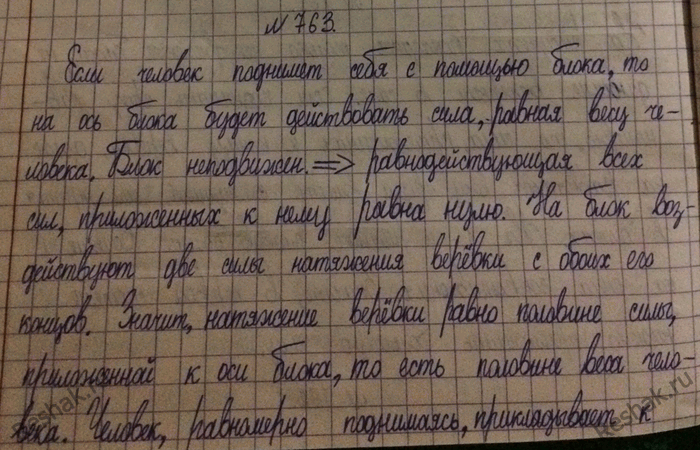 N 763.
Если человек поднимет себя с помощью блока, то
на ось блока будет действовать сила, равная весу че-
ловека. Блок неподвижен. => равнодействующая всех
сил, приложенных к нему равна нулю. На блок воз-
действуют две силы натяжения верёвки с обоих его
концов. Значит, натяжение верёвки равно половине силы,
приложенной к оси блока, то есть половине веса чело-
века. Человек, равномерно поднимаясь, прикладывает к
reshak.ru
reshak.ru